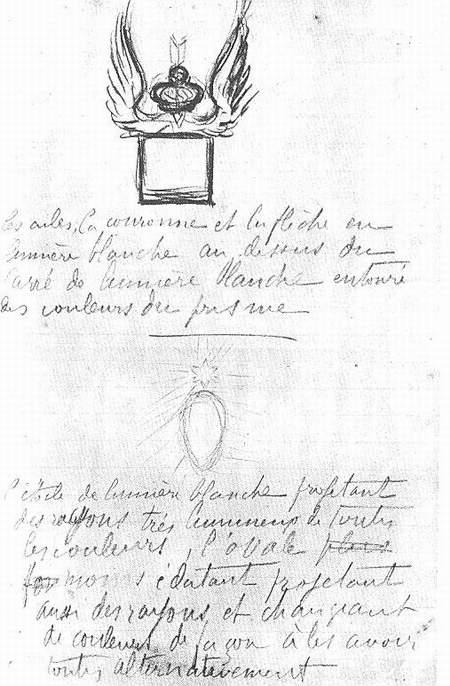 les ailes, la couronne et la flèche en
lumière blanche au dessus du
carré de lumière blanche entouré
des couleurs du prisme
l'étoile de lumière blanche projetant
des rayons très lumineux de toutes
les couleurs, l'ovale plus
moins éclatant projetant
aussi des rayons, et changeant
de couleurs de façon à les avoir
toutes alternativement